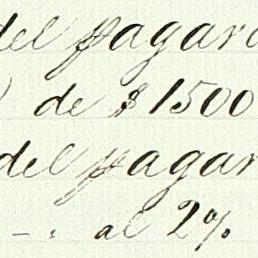 del pagaré
) de $1500
del pagar
- . al 2%